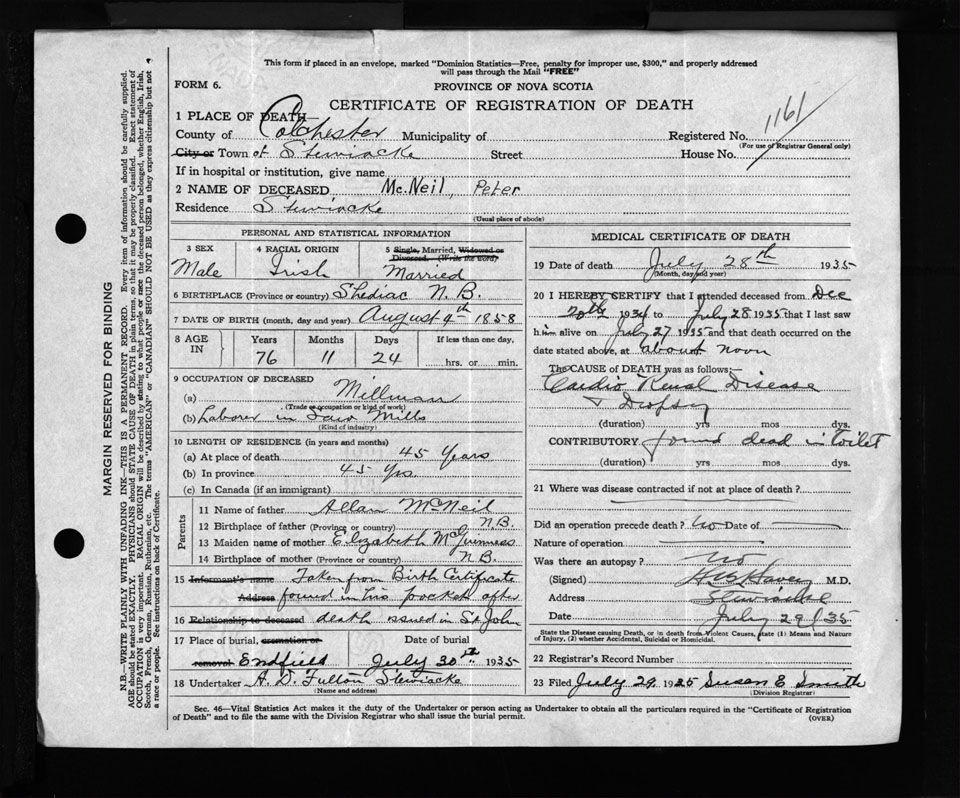 This form if placed in an envelope, marked "Dominion Statistics—Free, penalty for improper use, $300," and properly addressed
will pass through the Mail "FREE"
FORM 6.
PROVINCE OF NOVA SCOTIA
CERTIFICATE OF REGISTRATION OF DEATH
1 PLACE OF DEATH—
County of Colchester Municipality of Registered No. 1161
(For use of Registrar General only)
City or Town of Stewiacke Street House No.
If in hospital or institution, give name
2 NAME OF DECEASED McNeil, Peter
Residence Stewiacke
(Usual place of abode)
PERSONAL AND STATISTICAL INFORMATION
3 SEX 4 RACIAL ORIGIN 5 Single, Married, Widowed or
Divorced. (Write the word)
Male Irish Married
6 BIRTHPLACE (Province or country) Shediac N.B.
7 DATE OF BIRTH (month, day and year) August 4th 1858
8 AGE IN Years Months Days If less than one day,
76 11 24 hrs. or min.
9 OCCUPATION OF DECEASED
(a) Millman
(Trade or occupation or kind of work)
(b) Laborer in Saw Mills
(Kind of industry)
10 LENGTH OF RESIDENCE (in years and months)
(a) At place of death 45 Years
(b) In province 45 Yrs.
(c) In Canada (if an immigrant)
Parents
11 Name of father Allan McNeil
12 Birthplace of father (Province or country) N.B.
13 Maiden name of mother Elizabeth McGuinness
14 Birthplace of mother (Province or country) N.B.
15 Informant's name Taken from Birth Certificate
Address found in his pocket after
16 Relationship to deceased death issued in St. John
17 Place of burial, cremation or Date of burial
removal Endfield July 30th 1935
18 Undertaker A. D. Fulton Stewiacke
(Name and address)
MEDICAL CERTIFICATE OF DEATH
19 Date of death July 28th 1935
(Month, day and year)
20 I HEREBY CERTIFY that I attended deceased from Dec
20th 1934 to July 28 1935 that I last saw
him alive on July 27 1935 and that death occurred on
date stated above, at about noon
The CAUSE of DEATH was as follows:
Cardio Renal Disease
& Dropsy
(duration) yrs mos dys.
CONTRIBUTORY found dead in toilet
(duration) yrs mos dys.
21 Where was disease contracted if not at place of death?
Did an operation precede death? no Date of
Nature of operation
Was there an autopsy? no
(Signed) M.D.
Address Stewiacke
Date July 29/35
State the Disease causing Death, or in death from Violent Causes, state (1) Means and Nature
of Injury, (2) whether Accidental, Suicidal or Homicidal.
22 Registrar's Record Number
23 Filed July 29, 1935 Susan E Smith
(Division Registrar)
Sec. 46—Vital Statistics Act makes it the duty of the Undertaker or person acting as Undertaker to obtain all the particulars required in the "Certificate of Registration
of Death" and to file the same with the Division Registrar who shall issue the burial permit.
(OVER)
MARGIN RESERVED FOR BINDING
N.B.—WRITE PLAINLY WITH UNFADING INK—THIS IS A PERMANENT RECORD. Every item of information should be carefully supplied.
AGE should be stated EXACTLY. PHYSICIANS should STATE CAUSE OF DEATH in plain terms, so that it may be properly classified. Exact statement of
OCCUPATION is very important. RACIAL ORIGIN will be described by stating to what people or race the deceased person belonged, whether English, Irish,
Scotch, French, German, Russian, Ruthenian, etc. The terms "AMERICAN" or "CANADIAN" SHOULD NOT BE USED as they express citizenship but not
a race or people. See instructions on back of Certificate.